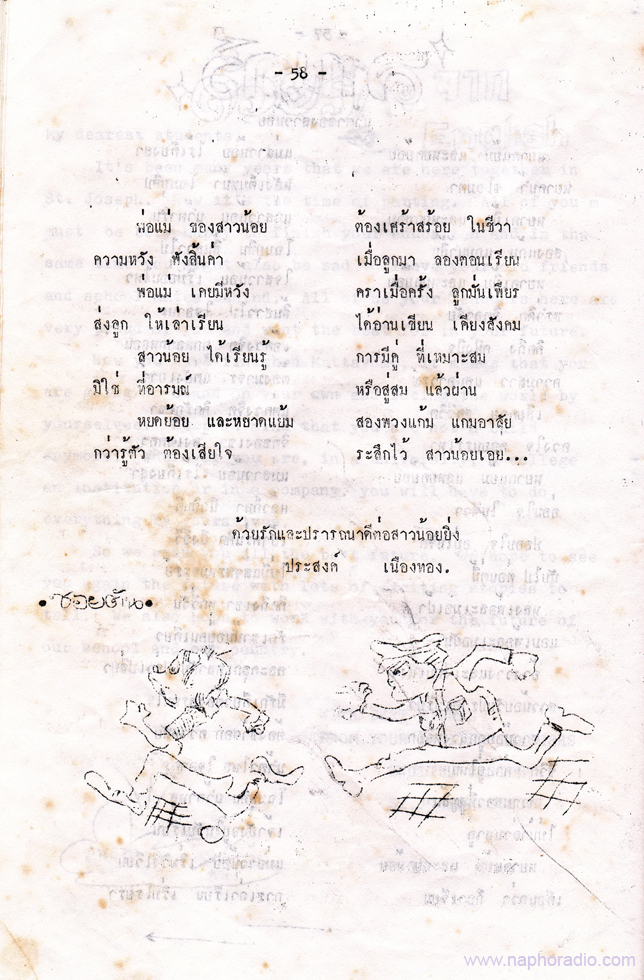 - 58 -
พ่อแม่ ของสาวน้อย ต้องเศร้าสร้อย ในชีวา
ความหวัง พังสิ้นค่า เมื่อลูกมา ลองตอนเรียน
พ่อแม่ เคยมีหวัง คราเมื่อครั้ง ลูกมั่นเพียร
ส่งลูก ให้เล่าเรียน ได้อ่านเขียน เคียงสังคม
สาวนอย ได้เรียนรู้ การมีคู่ ที่เหมาะสม
มิใช่ ที่อารมณ์ หรือสู่สม แล้วผ่าน
หยดย้อย และหยาดแย้ม สองพวงแก้ม แกมอาลัย
กว่ารู้ตัว ต้องเสียใจ ระลึกไว้ สาวน้อยเอย...
ด้วยรักและปรารถนาดีต่อสาวน้อยยิ่ง
ประสงค์ เนืองทอง.
www.naphoradio.com